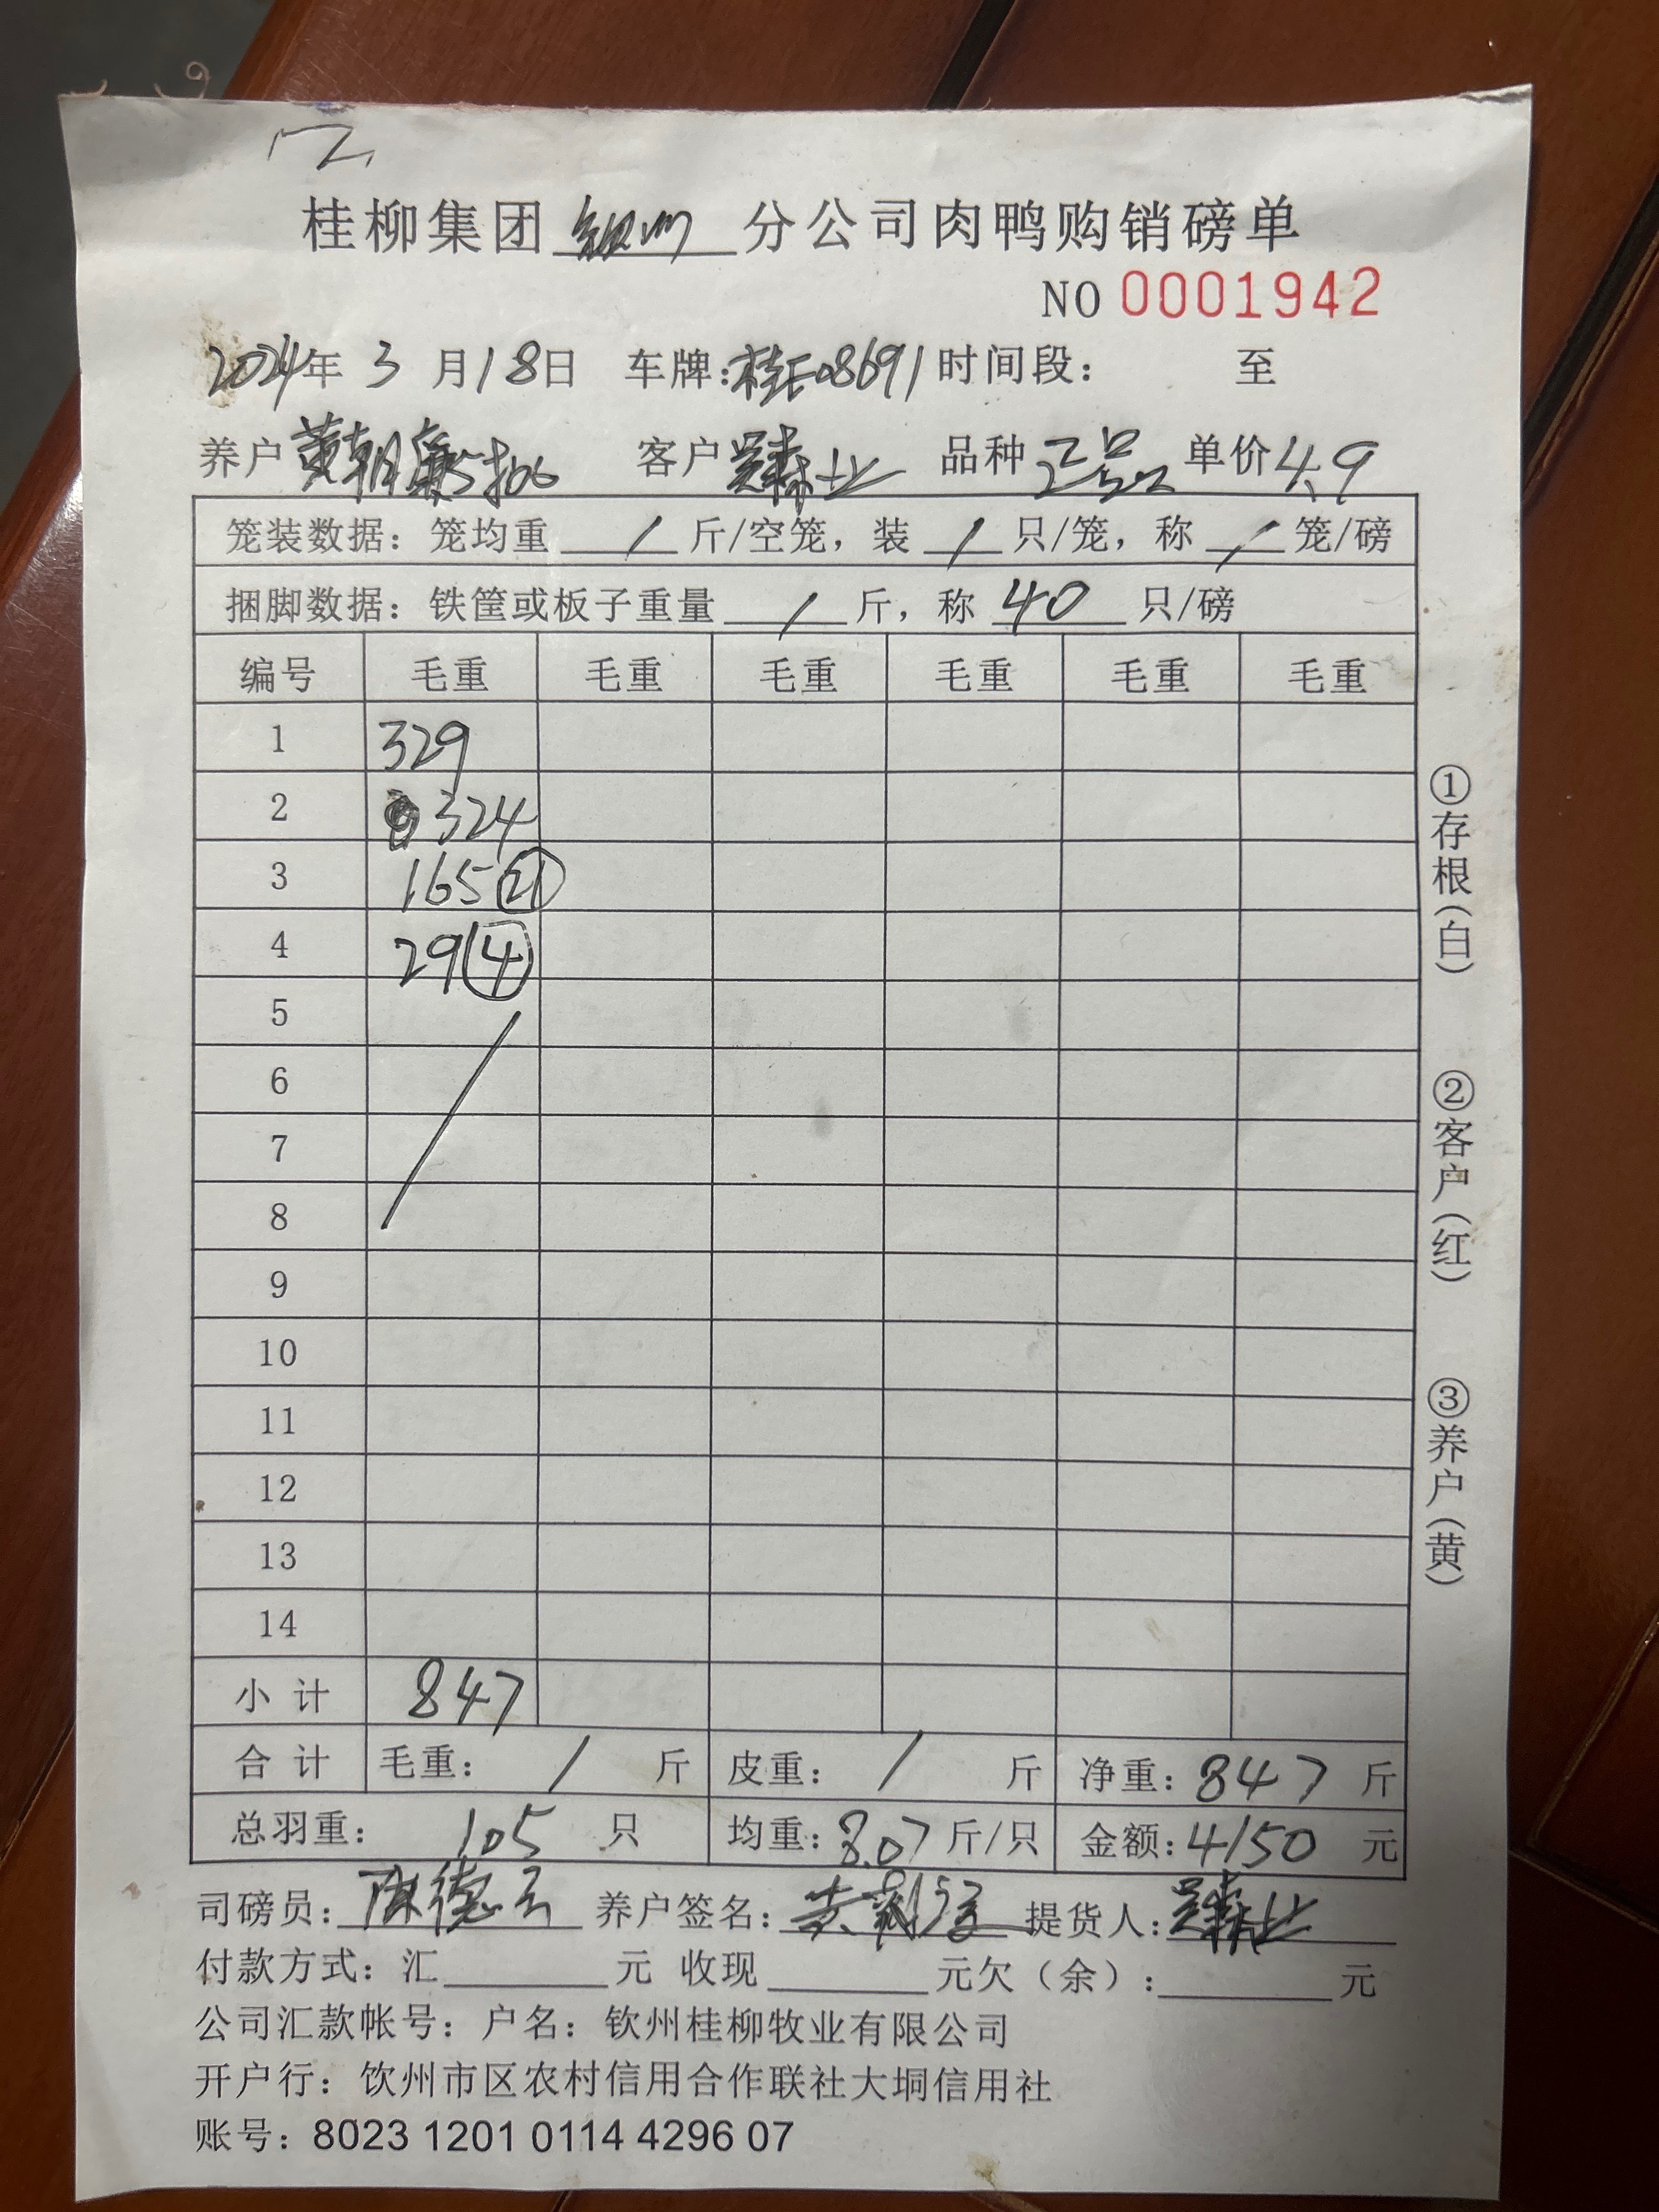 桂柳集团钦州分公司肉鸭购销磅单
NO 0001942
2024年 3 月18日 车牌:桂E08691 时间段: 至
养户 黄朝 客户 品种 正品 单价4.9
笼装数据: 笼均重 / 斤/空笼, 装 / 只/笼, 称 / 笼/磅
捆脚数据: 铁筐或板子重量 / 斤, 称 40 只/磅
编号 毛重 毛重 毛重 毛重 毛重 毛重
1 329
2 324
3 165 21
4 29 4
5
6
7
8
9
10
11
12
13
14
小计 847
合计 毛重: / 斤 皮重: / 斤 净重: 847 斤
总羽重: 105 只 均重: 8.07 斤/只 金额: 4150 元
司磅员: 陈德云 养户签名: 提货人:
付款方式: 汇 元 收现 元欠(余): 元
公司汇款帐号: 户名: 钦州桂柳牧业有限公司
开户行: 钦州市区农村信用合作联社大垌信用社
账号: 8023 1201 0114 4296 07
①存根(白)
②客户(红)
③养户(黄)